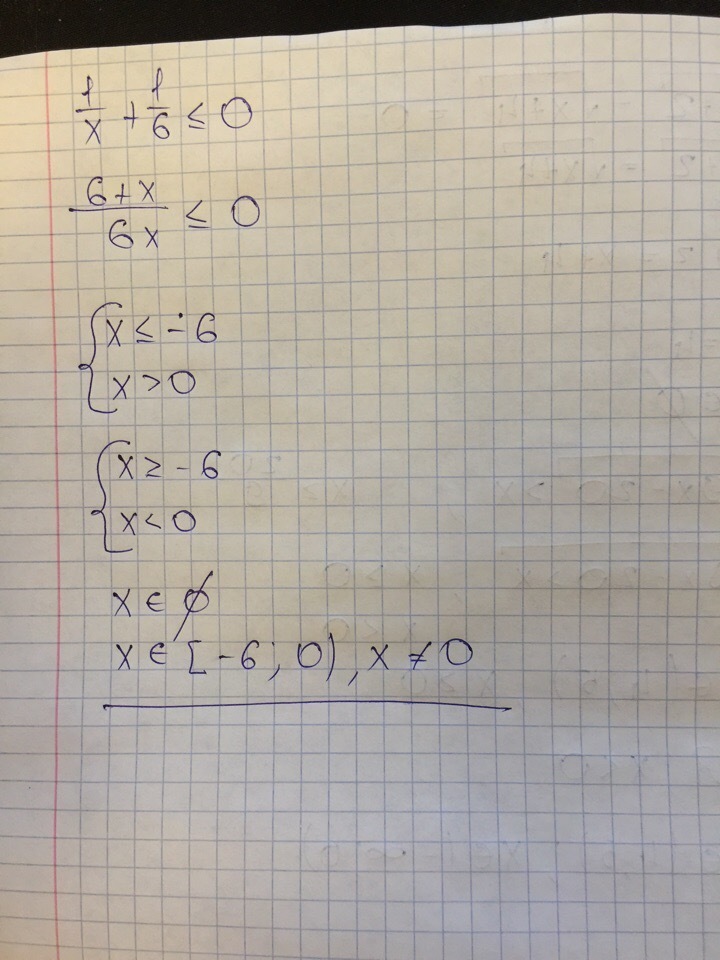 1/x + 1/6 ≤ 0
(6+x)/(6x) ≤ 0
{ x ≤ -6
x > 0
{ x ≥ -6
x < 0
x ∈ ∅
x ∈ [-6; 0), x ≠ 0